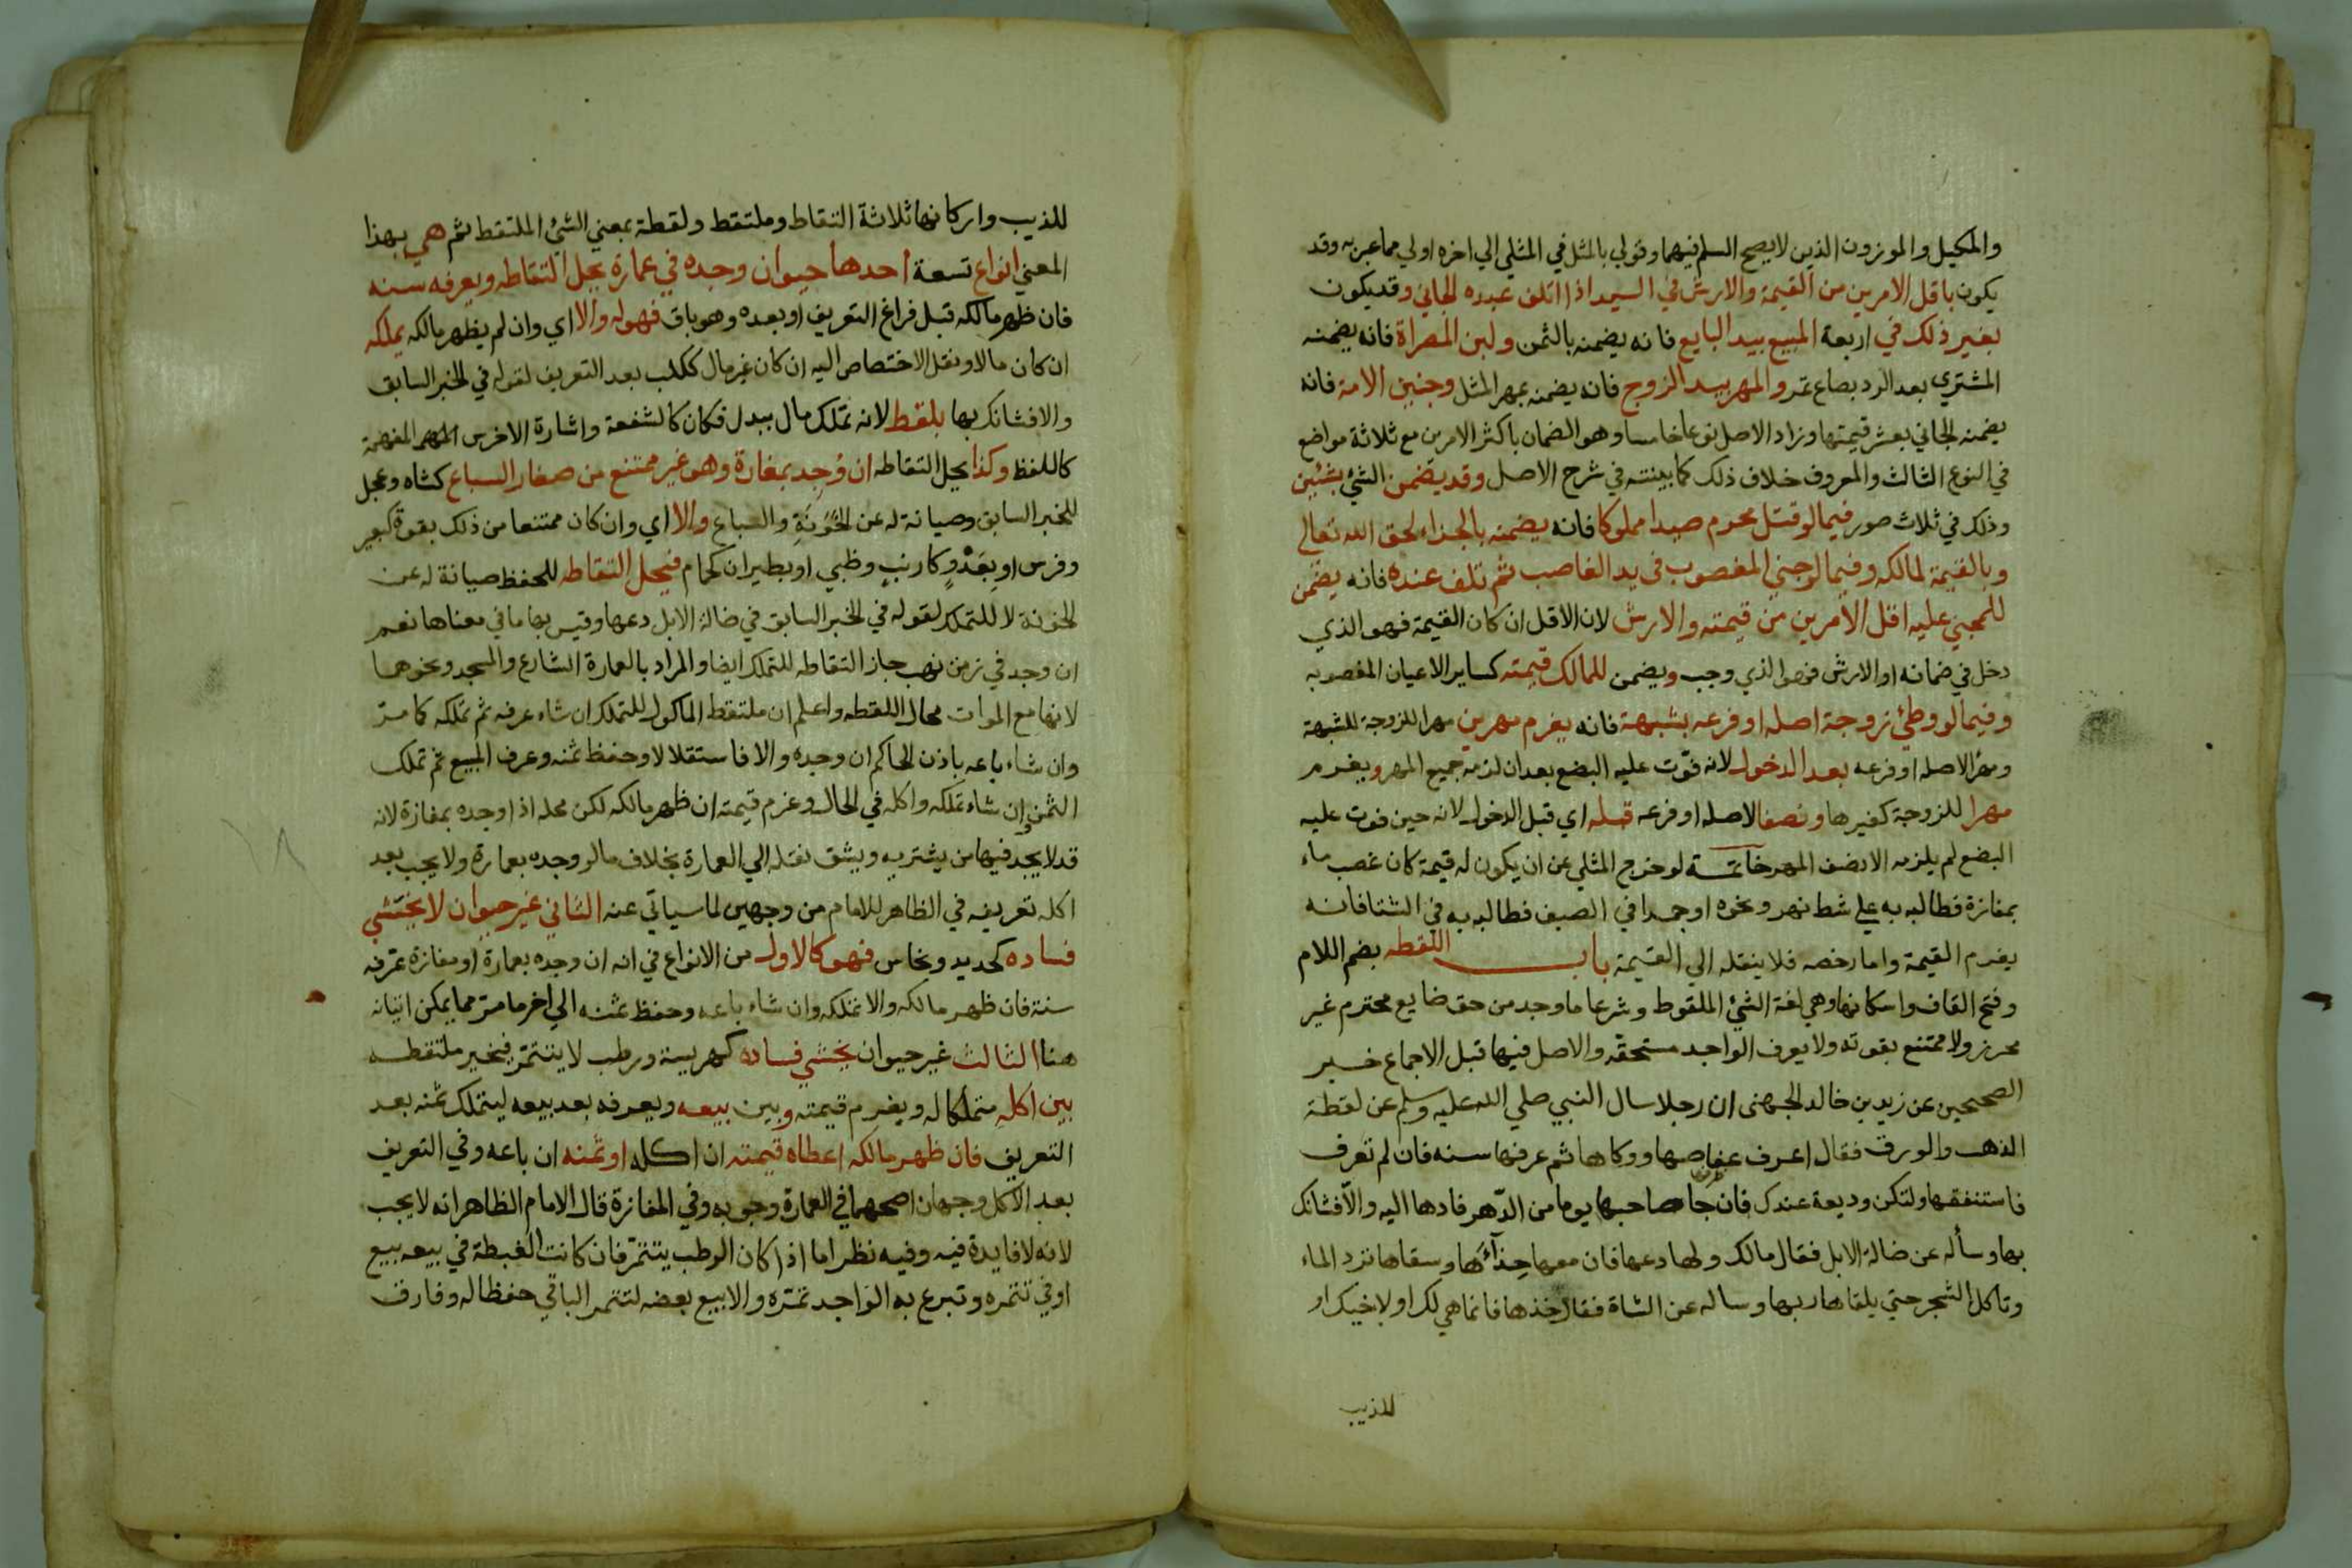 والمكيل والموزون الذين لا يصح السلم فيهما وقولي بالمثل في المثلي الي اخره اولي مما عبر به وقد
يكون باقل الامرين من القيمة والارش في السيد اذا اتلف عبده الجاني وقد يكون
بغير ذلك في اربعة المبيع بيد البايع فانه يضمنه بالثمن ولبن المصراة فانه يضمنه
المشتري بعد الرد بصاع تمر والمهر بيد الزوج فانه يضمنه بمهر المثل وجنين الامة فانه
يضمنه الجاني بعشر قيمتها وزاد الاصل نوعا خامسا وهو الضمان باكثر الامرين مع ثلاثة مواضع
في النوع الثالث والمعروف خلاف ذلك كما بينته في شرح الاصل وقد يضمن الشئ بشئين
وذلك في ثلاث صور فيما لو قتل محرم صيدا مملوكا فانه يضمنه بالجزاء لحق الله تعالي
وبالقيمة لمالكه وفيما لو جني المغصوب في يد الغاصب ثم تلف عنده فانه يضمن
للمجني عليه اقل الامرين من قيمته والارش لان الاقل ان كان القيمة فهو الذي
دخل في ضمانه او الارش فهو الذي وجب ويضمن للمالك قيمته كساير الاعيان المغصوبه
وفيما لو وطئ زوجة اصله او فرعه بشبهة فانه يغرم مهرين مهرا للزوجة للشبهة
ومهرا لاصله او فرعه بعد الدخول لانه فوّت عليه البضع بعد ان لزمه جميع المهر ويغرم
مهرا للزوجة كغيرها ونصفا لاصله او فرعه قبله اي قبل الدخول لانه حين فوت عليه
البضع لم يلزمه الا نصف المهر خاتمة لو خرج المثلي عن ان يكون له قيمة كان غصب ماء
بمفازة فطالبه به علي شط نهر ونحوه او جمدا في الصيف فطالبه به في الشتا فانه
يغرم القيمة واما رخصه فلا ينقله الي القيمة باب اللقطه بضم اللام
وفتح القاف واسكانها وهي لغة الشئ الملقوط وشرعا ما وجد من حق ضايع محترم غير
محرز ولا ممتنع بقوته ولا يعرف الواجد مستحقه والاصل فيها قبل الاجماع خبر
الصحيحين عن زيد بن خالد الجهني ان رجلا سال النبي صلي الله عليه وسلم عن لقطة
الذهب والورق فقال اعرف عفاصها ووكاها ثم عرفها سنه فان لم تعرف
فاستنفقها ولتكن وديعة عندك فان جا صاحبها يوما من الدّهر فادها اليه والّا فشانك
بها وسأله عن ضالة الابل فقال مالك ولها دعها فان معها حِذآءَها وسقاها ترد الماء
وتاكل الشجر حتي يلقاها ربها وساله عن الشاة فقال خذها فانما هي لك او لاخيك او
للذيب
للذيب واركانها ثلاثة التقاط وملتقط ولقطة بمعني الشئ الملتقط ثم هي بهذا
المعني انواع تسعة احدها حيوان وجده في عمارة يحل التقاطه ويعرفه سنه
فان ظهر مالكه قبل فراغ التعريف او بعده وهو باق فهو له والا اي وان لم يظهر مالكه يملكه
ان كان مالا ونقل الاختصاص اليه ان كان غير مال ككلب بعد التعريف لقوله في الخبر السابق
والا فشانك بها بلفظ لانه تملك مال ببدل فكان كالشفعة واشارة الاخرس المفهمة
كاللفظ وكذا يحل التقاطه ان وُجِد بمفازة وهو غير ممتنع من صغار السباع كشاه وعجل
للخبر السابق وصيانة له عن الخَوَنَةِ والسباع والا اي وان كان ممتنعا من ذلك بقوة كبعير
وفرس او بِعَدْوٍ كارنبٍ وظبي او بطيران كحمام فيحل التقاطه للحفظ صيانة له عن
الخونة لا للتملك لقوله في الخبر السابق في ضالة الابل دعها وقيس بها ما في معناها نعم
ان وجد في زمن نهب جاز التقاطه للتملك ايضا والمراد بالعمارة الشارع والمسجد ونحوهما
لانها مع الموات محال اللقطه واعلم ان ملتقط الماكول للتملك ان شاء عرفه ثم تملكه كما مرّ
وان شاء باعه باذن الحاكم ان وجده والا فاستقلالا وحفظ ثمنه وعرف المبيع ثم تملك
الثمن وان شاء تملكه واكله في الحال وغرم قيمته ان ظهر مالكه لكن محله اذا وجده بمفازة لانه
قد لا يجد فيها من يشتريه ويشق نقله الي العمارة بخلاف ما لو وجده بعمارة ولا يجب بعد
اكله تعريفه في الظاهر للامام من وجهين لما سياتي عنه الثاني غير حيوان لا يختشي
فساده كحديد ونحاس فهو كالاول من الانواع في انه ان وجده بعمارة او مفازة عرّفه
سنة فان ظهر مالكه والا تملكه وان شاء باعه وحفظ ثمنه الي اخر ما مرّ مما يمكن اتيانه
هنا الثالث غير حيوان يختشي فساده كهريسة ورطب لا يتتمّر فيخير ملتقطه
بين اكلهِ متملكا له ويغرم قيمته وبين بيعه ويعرفه بعد بيعه ليتملك ثمنه بعد
التعريف فان ظهر مالكه اعطاه قيمته ان اكله او ثمنه ان باعه وفي التعريف
بعد الاكل وجهان اصحهما في العمارة وجوبه وفي المفازة قال الامام الظاهر انه لا يجب
لانه لا فايدة فيه وفيه نظر اما اذا كان الرطب يتتمّر فان كانت الغبطة في بيعه بيع
او في تتمره وتبرع به الواجد تمّره والا بيع بعضه لتتمر الباقي حفظا له وفارق